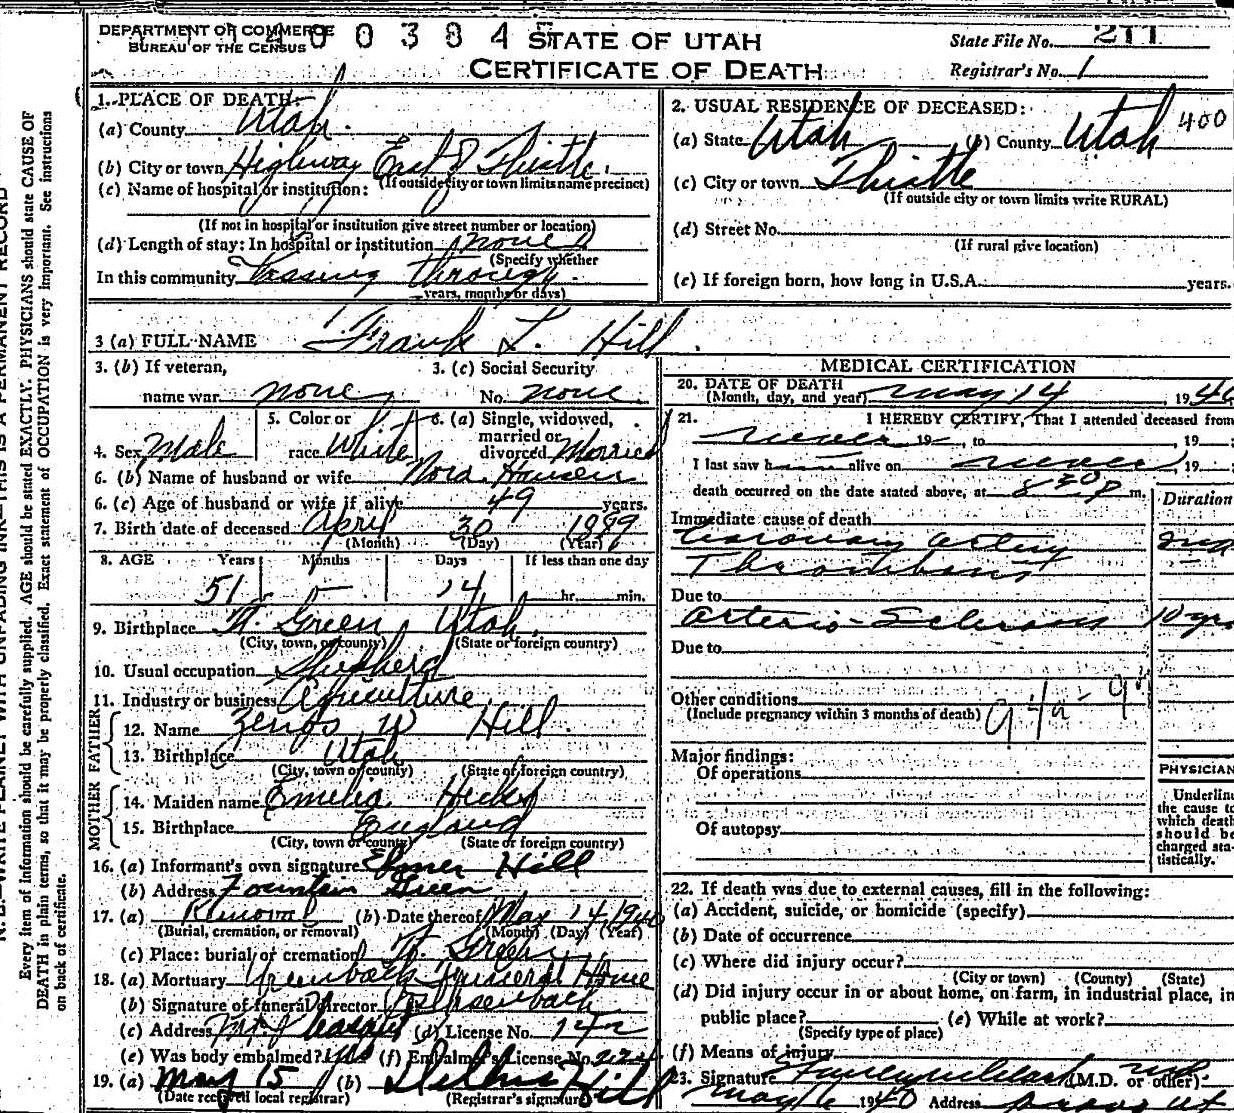 DEPARTMENT OF COMMERCE
BUREAU OF THE CENSUS
4 0 0 3 8 4
STATE OF UTAH
CERTIFICATE OF DEATH
State File No. 211
Registrar's No. 1
1. PLACE OF DEATH:
(a) County Utah
(b) City or town Highway East of Thistle
(If outside city or town limits name precinct)
(c) Name of hospital or institution:
(If not in hospital or institution give street number or location)
(d) Length of stay: In hospital or institution none
(Specify whether
In this community Passing through
years, months or days)
2. USUAL RESIDENCE OF DECEASED:
(a) State Utah (b) County Utah 400
(c) City or town Thistle
(If outside city or town limits write RURAL)
(d) Street No.
(If rural give location)
(e) If foreign born, how long in U.S.A. years.
3 (a) FULL NAME Frank L. Hill
3. (b) If veteran,
name war none
3. (c) Social Security
No. none
4. Sex Male
5. Color or
race White
6. (a) Single, widowed,
married or
divorced Married
6. (b) Name of husband or wife Nora Hansen
6. (c) Age of husband or wife if alive 49 years.
7. Birth date of deceased April 30 1889
(Month) (Day) (Year)
8. AGE Years Months Days If less than one day
51 - 14 hr. min.
9. Birthplace Ft. Green Utah
(City, town, or county) (State or foreign country)
10. Usual occupation Shepherd
11. Industry or business Agriculture
FATHER
12. Name W Hill
13. Birthplace Utah
(City, town or county) (State or foreign country)
MOTHER
14. Maiden name Emelia Hicks
15. Birthplace England
(City, town or county) (State or foreign country)
16. (a) Informant's own signature Elmer Hill
(b) Address Fountain Green
17. (a) Removal (b) Date thereof May 14 1940
(Burial, cremation, or removal) (Month) (Day) (Year)
(c) Place: burial or cremation Ft. Green
18. (a) Mortuary Funeral Home
(b) Signature of funeral Director
(c) Address Mt. Pleasant (d) License No. 142
(e) Was body embalmed? yes (f) Embalmer's License No. 224
19. (a) May 15 (b) Hill
(Date received local registrar) (Registrar's signature)
MEDICAL CERTIFICATION
20. DATE OF DEATH
(Month, day, and year) May 14 1940
21. I HEREBY CERTIFY, That I attended deceased from
never 19 , to , 19 ;
I last saw h alive on never , 19 ;
death occurred on the date stated above, at 8 30 P m.
Duration
Immediate cause of death
Coronary artery
Thrombosis
Due to
Arterio-Sclerosis 10 yrs
Due to
Other conditions
(Include pregnancy within 3 months of death) 94a
Major findings:
Of operations
Of autopsy
PHYSICIAN
Underline
the cause to
which death
should be
charged sta-
tistically.
22. If death was due to external causes, fill in the following:
(a) Accident, suicide, or homicide (specify)
(b) Date of occurrence
(c) Where did injury occur?
(City or town) (County) (State)
(d) Did injury occur in or about home, on farm, in industrial place, in
public place? (e) While at work?
(Specify type of place)
(f) Means of injury
23. Signature (M.D. or other)
May 1940 Address Provo Ut
Every item of information should be carefully supplied. AGE should be stated EXACTLY. PHYSICIANS should state CAUSE OF
DEATH in plain terms, so that it may be properly classified. Exact statement of OCCUPATION is very important. See instructions
on back of certificate.
N. B.—WRITE PLAINLY WITH UNFADING INK—THIS IS A PERMANENT RECORD